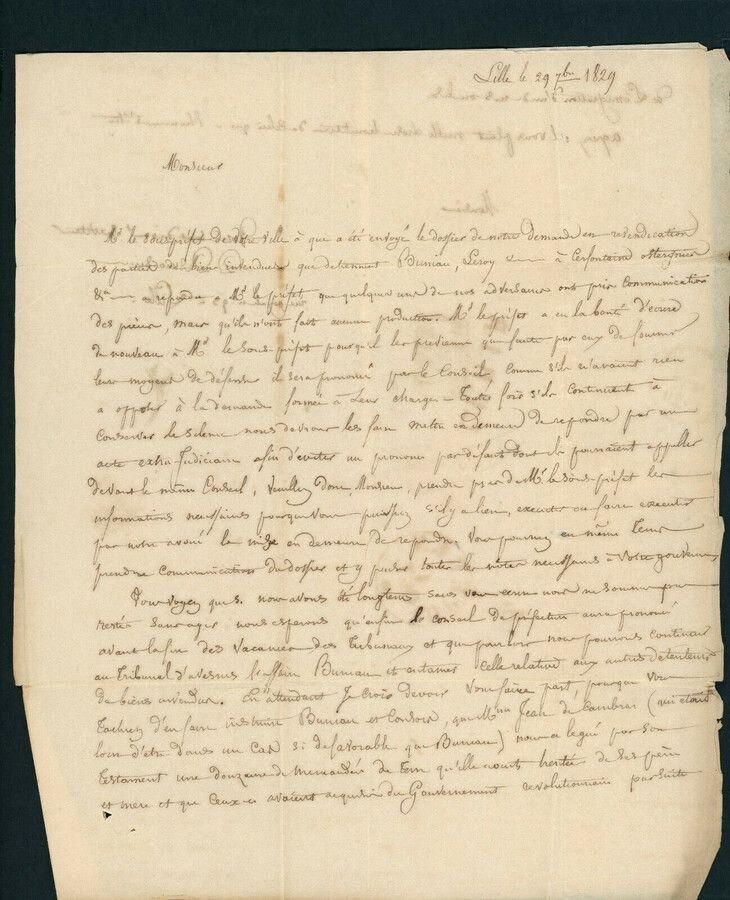 Lille le 29 7bre 1829
Monsieur
Mr le sous préfet de votre ville à que a été envoyé le dossier de notre demande en revendication
des parties de biens invendues que detiennent Buniau, Leroy à Cerfontaine
&a a repondu a Mr le préfet, que quelques uns de nos adversaires ont pris Communication
des pieces, mais qu'ils n'ont fait aucune production. Mr le préfet a eu la bonté d'écrire
de nouveau à Mr le sous-préfet pour qu'il les previenne que faute par eux de fournir
leurs moyens de défense il sera prononcé par le Conseil comme s'ils n'avaient rien
a opposer à la demande formée à Leur charge - Toutes fois s'ils Continuent à
Conserver le silence nous devrons les faire mettre en demeure de repondre par un
acte extra Judiciaire afin d'éviter un prononcé par défaut dont ils pourraient appeller
devant le même Conseil, Veuillez donc Monsieur, prendre près de Mr le sous-préfet les
informations necessaires pour que vous puissiez s'il y a lieu, executer ou faire executer
par notre avoué la mise en demeure de repondre. Vous pourrez en même tems
prendre Communication du dossier et y puiser toutes les notes necessaires à Votre gouverne
Vous voyez que si nous avons été longtems sans vous ecrire nous ne sommes pas
restés sans agir nous esperons qu'enfin le conseil de préfecture aura prononcé
avant la fin des Vacances des Tribunaux et que pour lors nous pourrons Continuer
au Tribunal d'avesnes l'affaire Buniau et entamer celle relative aux autres détenteurs
de biens invendus. En attendant Je Crois devoir Vous faire part, pourque Vous
tachiez d'en faire instruire Buniau et Consors, que Mme Jean de Cambrai (qui étoit
loin d'être dans un Cas si défavorable que Buniau) nous a legué par son
Testament une douzaine de mencaudées de terre qu'elle avoit heritée de ses père
et mere et que Ceux-ci avoient acquises du Gouvernement revolutionnaire par suite